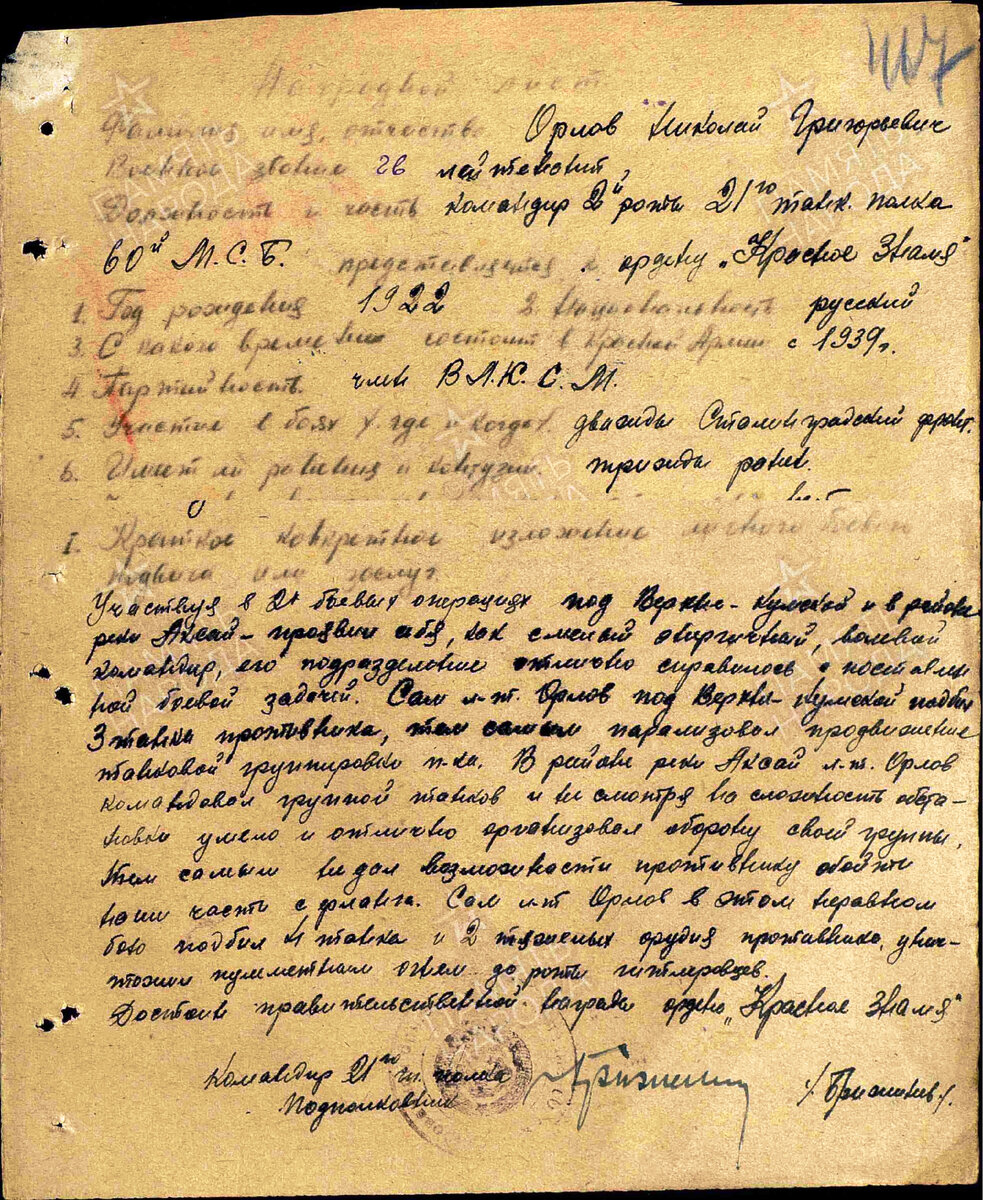 407
Наградной лист
Фамилия, имя, отчество Орлов Николай Григорьевич
Военное звание гв лейтенант
Должность и часть командир 2й роты 21го танк. полка
60й М.С.Б. представляется к ордену „Красное Знамя"
1. Год рождения 1922 2. Национальность русский
3. С какого времени состоит в Красной Армии с 1939 г.
4. Партийность член В.Л.К.С.М.
5. Участие в боях (где и когда) дважды Сталинградский фронт.
6. Имеет ли ранения и контузии трижды ранен.
I. Краткое конкретное изложение личного боевого
подвига или заслуг.
Участвуя в 2х боевых операциях под Верхне-Кумской и в районе
реки Аксай – проявил себя, как смелый энергичный, волевой
командир, его подразделение отлично справилось с поставлен
ной боевой задачей. Сам л-т. Орлов под Верхне-Кумской подбил
3 танка противника, тем самым парализовал продвижение
танковой группировки п-ка. В районе реки Аксай л-т. Орлов
командовал группой танков и не смотря на сложность обста-
новки умело и отлично организовал оборону своей группы,
тем самым не дал возможности противнику обойти
наши части с фланга. Сам л-т Орлов в этом неравном
бою подбил 4 танка и 2 тяжелых орудия противника, унич-
тожил пулеметным огнем до роты гитлеровцев.
Достоин правительственной награды ордена „Красное Знамя"
Командир 21го т. полка
Подполковник